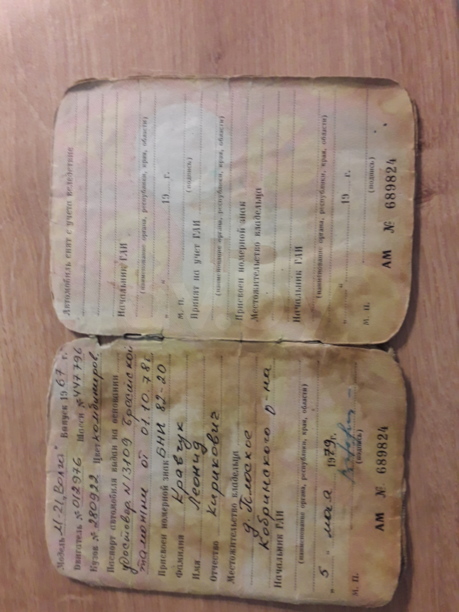 Модель М-21 "Волга" Выпуск 1967 г.
Двигатель № 012976 Шасси № 447796
Кузов № 280922 Цвет комбиниров.
Паспорт автомобиля выдан на основании
удостовер. N 13109 Брестской
таможни от 01.10.78г.
Присвоен номерной знак БНИ 82-20
Фамилия Кравчук
Имя Леонид
Отчество Кирикович
Местожительство владельца
д. Плоское
Кобринского р-на
Начальник ГАИ
(наименование органа, республики, края, области)
" 5 " мая 1979 г.
М. П. (подпись)
АМ № 689824
Автомобиль снят с учета вследствие
Начальник ГАИ
(наименование органа, республики, края, области)
" " 19 г.
М. П. (подпись)
Принят на учет ГАИ
(наименование органа, республики, края, области)
Присвоен номерной знак
Местожительство владельца
Начальник ГАИ
(наименование органа, республики, края, области)
" " 19 г.
М. П. (подпись)
АМ № 689824